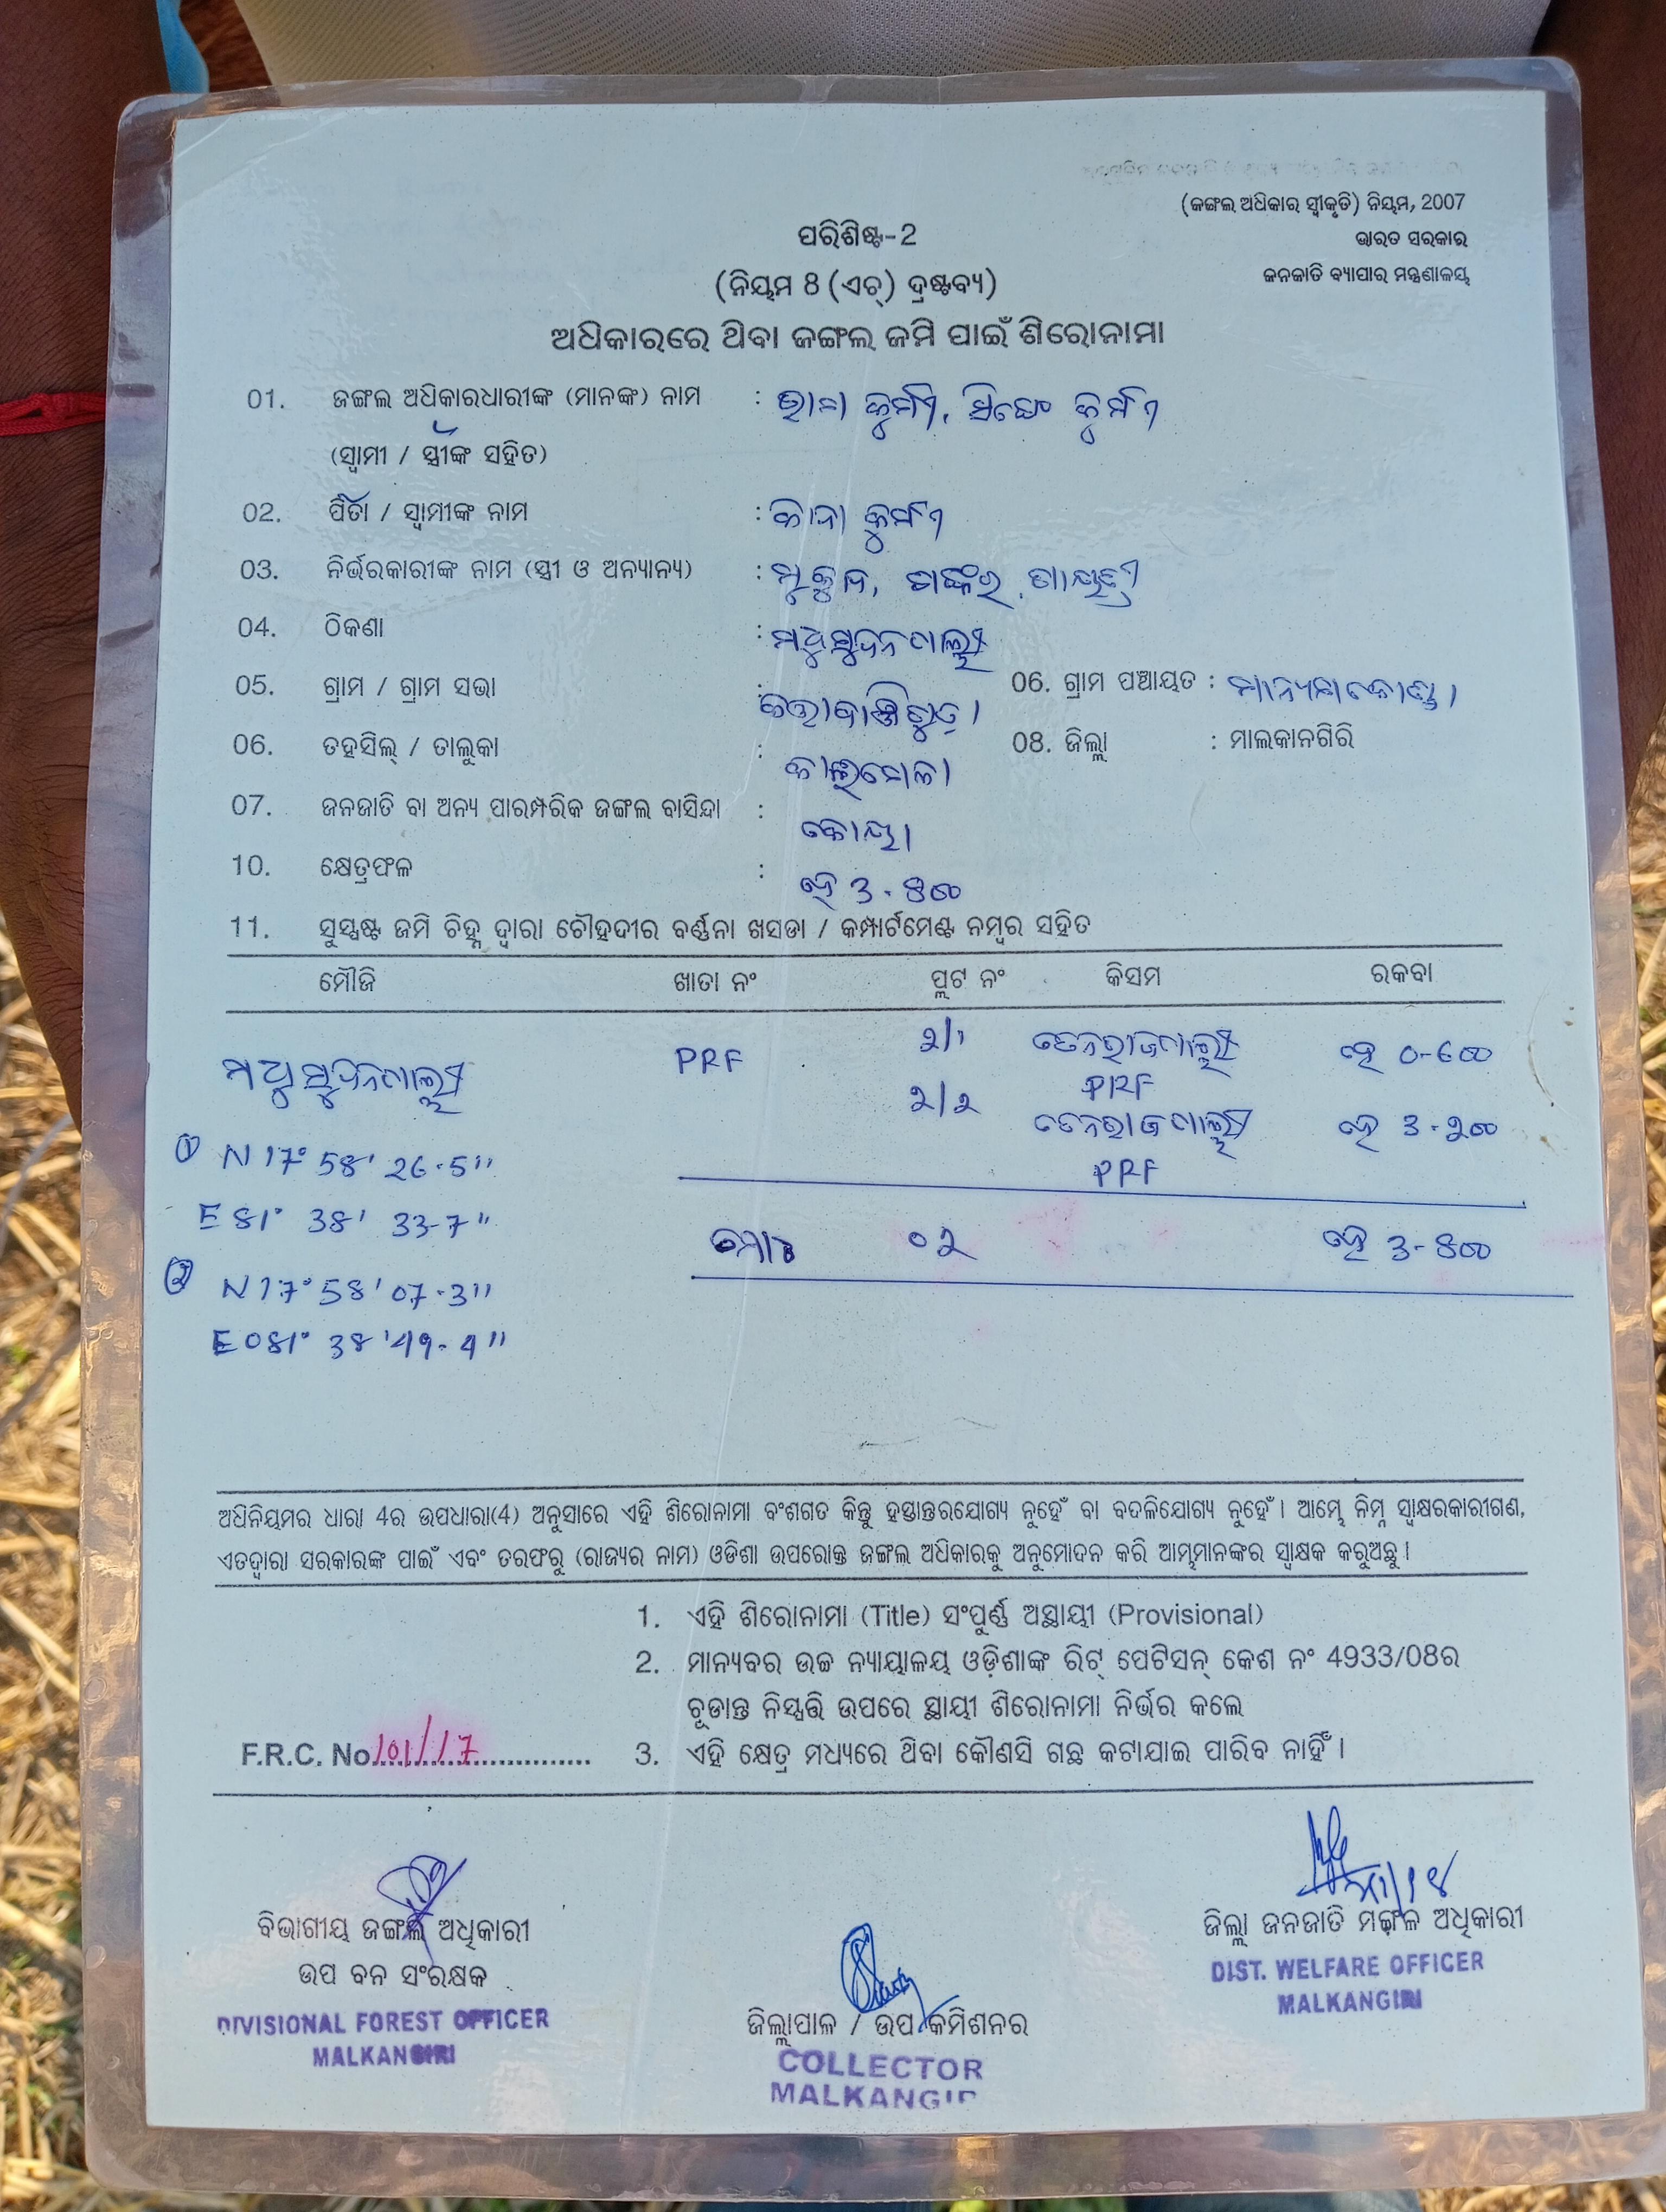 (ଜଙ୍ଗଲ ଅଧିକାର ସ୍ୱୀକୃତି) ନିୟମ, 2007
ଭାରତ ସରକାର
ଜନଜାତି ବ୍ୟାପାର ମନ୍ତ୍ରଣାଳୟ
ପରିଶିଷ୍ଟ-2
(ନିୟମ 8 (ଏଚ୍) ଦ୍ରଷ୍ଟବ୍ୟ)
ଅଧିକାରରେ ଥିବା ଜଙ୍ଗଲ ଜମି ପାଇଁ ଶିରୋନାମା
01. ଜଙ୍ଗଲ ଅଧିକାରଧାରୀଙ୍କ (ମାନଙ୍କ) ନାମ : ଭାମା କୁର୍ମୀ, କୁର୍ମୀ
(ସ୍ୱାମୀ / ସ୍ତ୍ରୀଙ୍କ ସହିତ)
02. ପିତା / ସ୍ୱାମୀଙ୍କ ନାମ : କାନା କୁର୍ମୀ
03. ନିର୍ଭରକାରୀଙ୍କ ନାମ (ସ୍ତ୍ରୀ ଓ ଅନ୍ୟାନ୍ୟ) : ମୁକୁନ୍ଦ, ଶଙ୍କର, ଗାୟତ୍ରୀ
04. ଠିକଣା : ମଧୁସୁଦନପାଲ୍ଲୀ
05. ଗ୍ରାମ / ଗ୍ରାମ ସଭା : 06. ଗ୍ରାମ ପଞ୍ଚାୟତ : ମାନ୍ୟମକୋଣ୍ଡା
06. ତହସିଲ୍ / ତାଲୁକା : କାଲିମେଳା 08. ଜିଲ୍ଲା : ମାଲକାନଗିରି
07. ଜନଜାତି ବା ଅନ୍ୟ ପାରମ୍ପରିକ ଜଙ୍ଗଲ ବାସିନ୍ଦା : କୋୟା
10. କ୍ଷେତ୍ରଫଳ : ହେ 3.800
11. ସୁସ୍ପଷ୍ଟ ଜମି ଚିହ୍ନ ଦ୍ୱାରା ଚୌହଦୀର ବର୍ଣ୍ଣନା ଖସଡା / କମ୍ପାର୍ଟମେଣ୍ଟ ନମ୍ବର ସହିତ
ମୌଜି ଖାତା ନଂ ପ୍ଲଟ ନଂ କିସମ ରକବା
ମଧୁସୁଦନପାଲ୍ଲୀ PRF ୨/୧ ତେନରାଜପାଲ୍ଲୀ ହେ ୦-୬୦୦
PRF
୨/୨ ତେନରାଜପାଲ୍ଲୀ ହେ 3-୨୦୦
PRF
① N 17° 58' 26.5"
E 81° 38' 33-7"
ମୋଟ ୦୨ ହେ 3-800
② N 17° 58' 07.3"
E 081° 38' 49-4"
ଅଧିନିୟମର ଧାରା 4ର ଉପଧାରା(4) ଅନୁସାରେ ଏହି ଶିରୋନାମା ବଂଶଗତ କିନ୍ତୁ ହସ୍ତାନ୍ତରଯୋଗ୍ୟ ନୁହେଁ ବା ବଦଳିଯୋଗ୍ୟ ନୁହେଁ । ଆମ୍ଭେ ନିମ୍ନ ସ୍ୱାକ୍ଷରକାରୀଗଣ,
ଏତଦ୍ୱାରା ସରକାରଙ୍କ ପାଇଁ ଏବଂ ତରଫରୁ (ରାଜ୍ୟର ନାମ) ଓଡିଶା ଉପରୋକ୍ତ ଜଙ୍ଗଲ ଅଧିକାରକୁ ଅନୁମୋଦନ କରି ଆମ୍ଭମାନଙ୍କର ସ୍ୱାକ୍ଷକ କରୁଅଛୁ ।
1. ଏହି ଶିରୋନାମା (Title) ସଂପୂର୍ଣ୍ଣ ଅସ୍ଥାୟୀ (Provisional)
2. ମାନ୍ୟବର ଉଚ୍ଚ ନ୍ୟାୟାଳୟ ଓଡ଼ିଶାଙ୍କ ରିଟ୍ ପେଟିସନ୍ କେଶ ନଂ 4933/08ର
ଚୂଡାନ୍ତ ନିସ୍ପତ୍ତି ଉପରେ ସ୍ଥାୟୀ ଶିରୋନାମା ନିର୍ଭର କଲେ
F.R.C. No 101/17 3. ଏହି କ୍ଷେତ୍ର ମଧ୍ୟରେ ଥିବା କୌଣସି ଗଛ କଟାଯାଇ ପାରିବ ନାହିଁ ।
ବିଭାଗୀୟ ଜଙ୍ଗଲ ଅଧିକାରୀ
ଉପ ବନ ସଂରକ୍ଷକ
DIVISIONAL FOREST OFFICER
MALKANGIRI
ଜିଲ୍ଲାପାଳ / ଉପ କମିଶନର
COLLECTOR
MALKANGIR
ଜିଲ୍ଲା ଜନଜାତି ମଙ୍ଗଳ ଅଧିକାରୀ
DIST. WELFARE OFFICER
MALKANGIRI